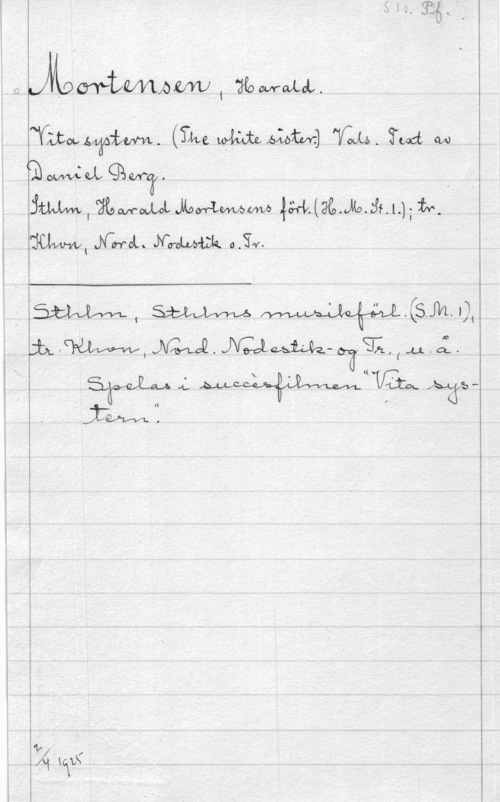 Str. Pf.
Mortensen, Harald.
Vita systern. (The white sister.) Vals. Text av
Daniel Berg.
Sthlm, Harald Mortensens förl. (H.M.St.1.); tr.
Khvn, Nord. Nodestik o. Tr.
Sthlm, Sthlms musikförl. (S.M.1),
tr. Khvn, Nord. Nodestik- og Tr., u. å.
Spelas i succèsfilmen "Vita sys-
tern".
2/4 1925